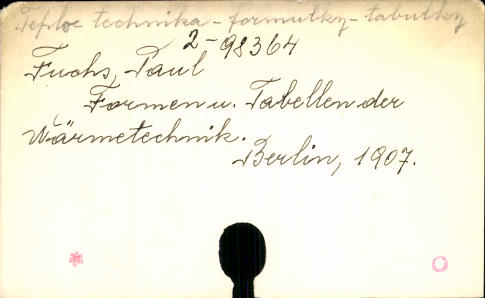 technika - formulky - tabulky
2-98364
Fuchs, Paul
Formen u. Tabellen der
Wärmetechnik.
Berlin, 1907.